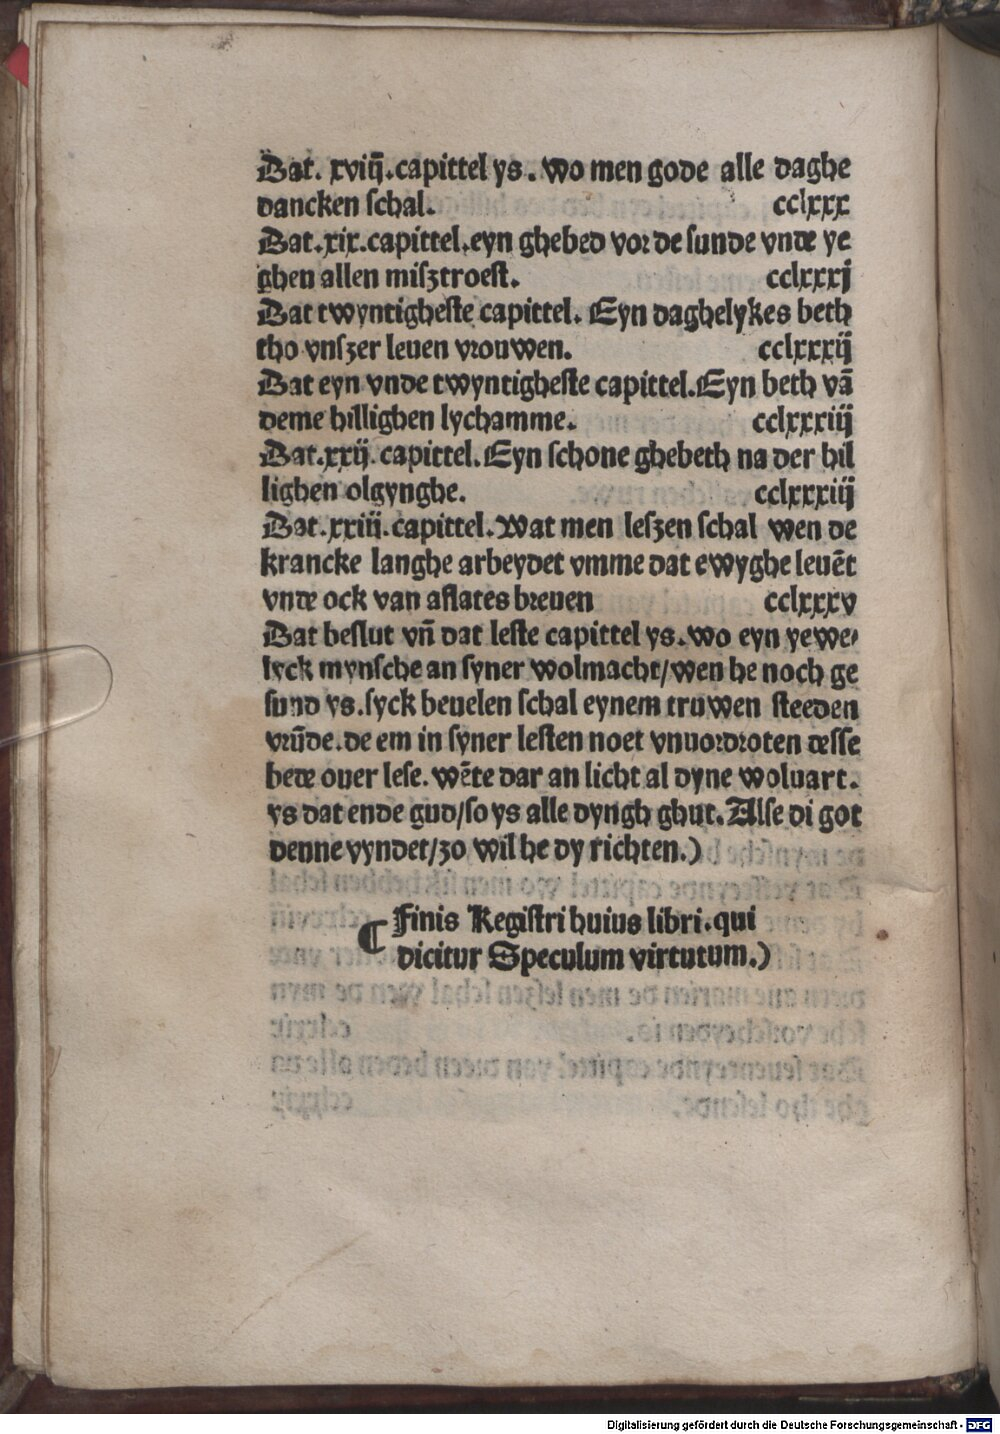 Dat. xviij̄.capittel ys. wo men gode alle daghe
dancken schal. cclxxx
Dat.xix.capittel.eyn ghebed vor de sunde vnde ye
ghen allen miſztroeſt. cclxxxj
Dat twyntigheſte capittel. Eyn daghelykes beth
tho vnſzer leuen vrouwen. cclxxxij
Dat eyn vnde twyntigheſte capittel.Eyn beth vā
deme hillighen lychamme. cclxxxiij
Dat.xxij.capittel.Eyn ſchone ghebeth na der hil
lighen olgynghe. cclxxxiiij
Dat.xxiij.capittel.Wat men leſzen ſchal wen de
krancke langhe arbeydet vmme dat ewyghe leuēt
vnde ock van aflates breuen cclxxxv
Dat beſlut vn̄ dat leſte capittel ys.wo eyn yewe⸗
lyck mynſche an ſyner wolmacht/wen he noch ge
ſund ys.ſyck beuelen ſchal eynem truwen ſteeden
vrūde.de em in ſyner leſten noet vnuordroten deſſe
bede ouer leſe. wēte dar an licht al dyne woluart.
ys dat ende gud/ſo ys alle dyngh ghut.Alſe di got
denne vyndet/zo wil he dy richten.)
¶ Finis Regiſtri huius libri.qui
dicitur Speculum virtutum.)
Digitalisierung gefördert durch die Deutsche Forschungsgemeinschaft - DFG